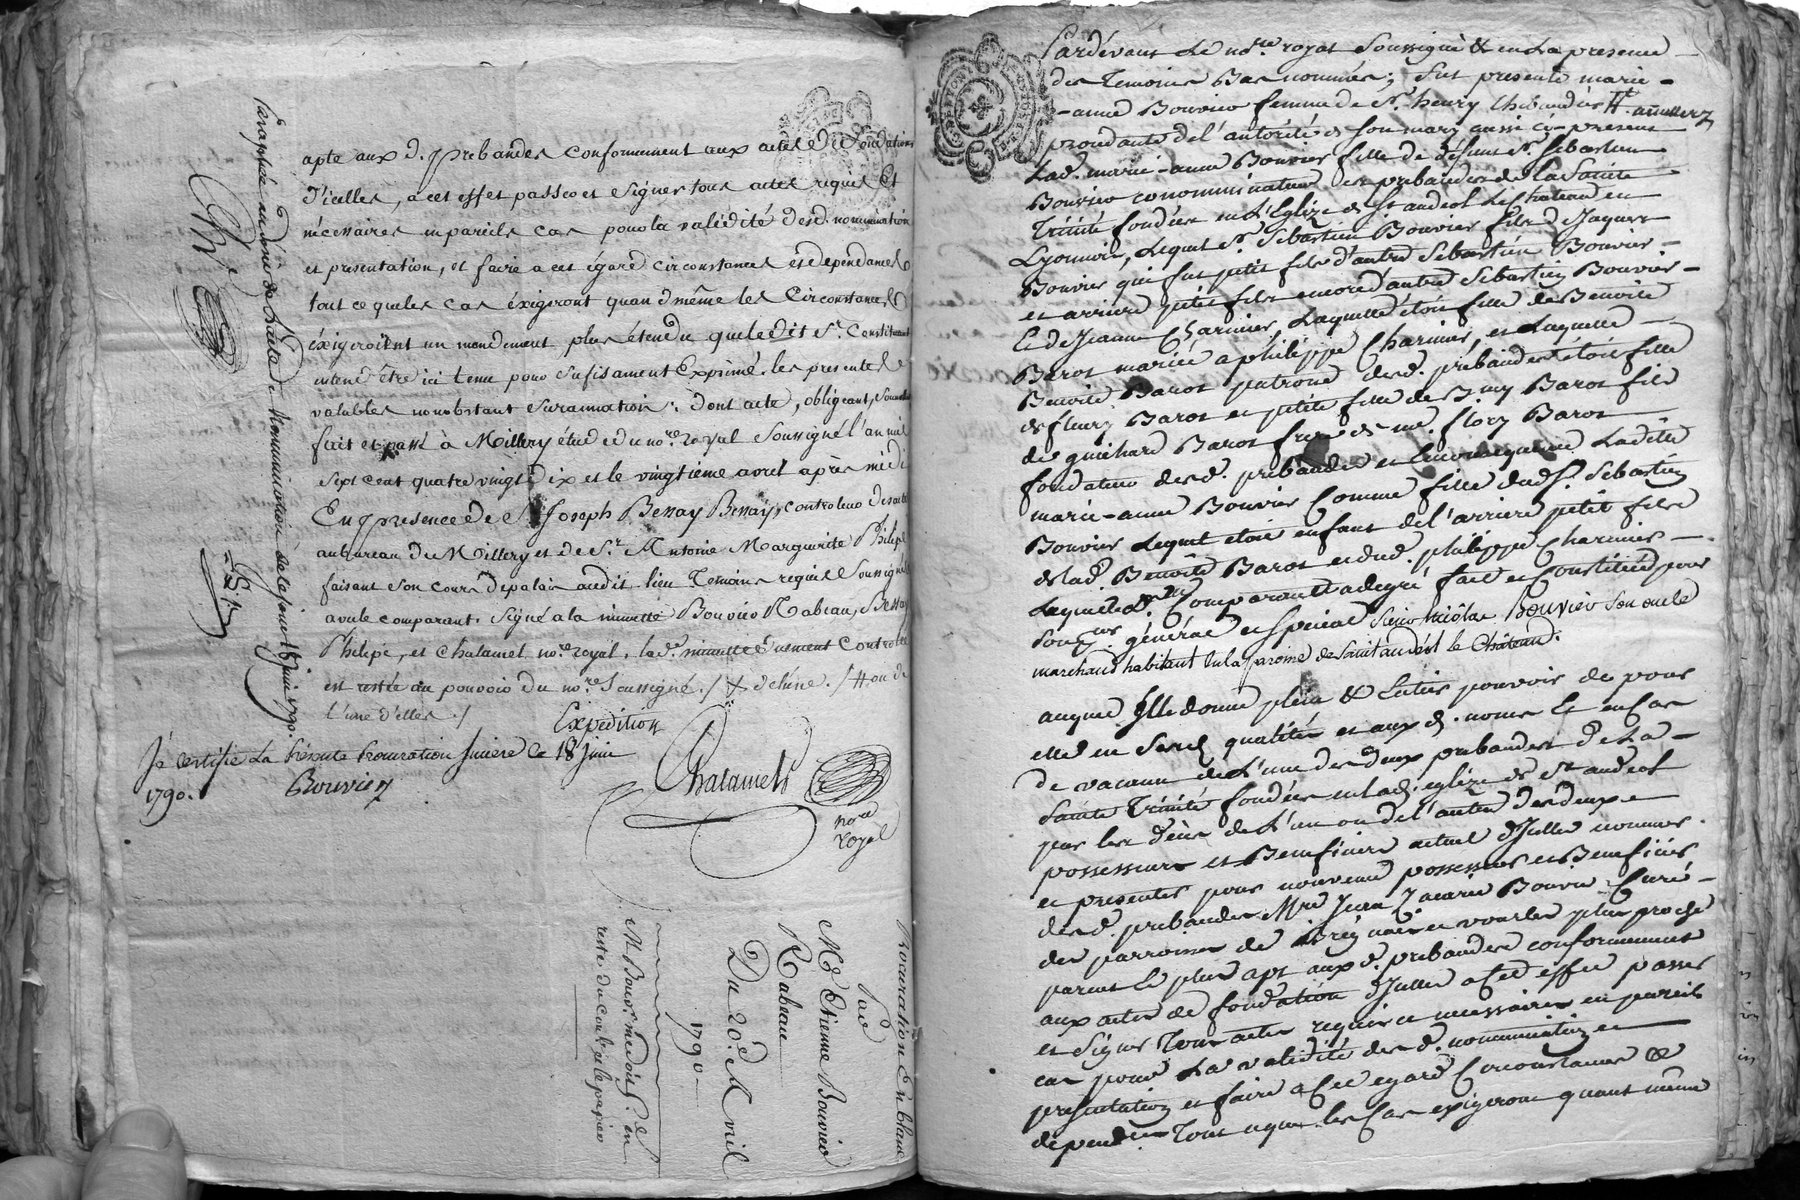 apte aux d. prebandes conformement aux actes de fondations
d'icelles, a cet effet passer et signer tous actes requis Et
nécessaires en pareils cas pour la validité desd. nomination
et presentation, et faire a cet égard circonstances et dependances
tout ce que les cas éxigeront quand même les Circonstances
éxigeroient un mendement plus étendu que ledit Sr. Constituant
entend être ici tenu pour sufisament Exprimé. les presentes
valables nonobstant surannation. Dont acte, obligeant, soumettant
fait et passé à Millery étude du no.re royal soussigné l'an mil
sept cent quatre vingt dix et le vingtieme avril après midi
En presence de Sr. Joseph Bessay controleur des actes
au bureau de Millery et de Sr. Antoine Marguerite Philipe
faisant son cours de palais audit lieu Temoins requis soussignés
avec le comparant. signé a la minutte Bouvier Rabeau, Bessay
Philipe, et Chalamel no.re royal. lad.e minutte duement Controllée
est restée au pouvoir du no.re soussigné. / # ou de
l'une d'elles ./
Expedition
Je certifie la présente procuration sincère ce 18 juin
1790. Bouvier
Chalamel
no.re
royal
Paraphée au désir de l'acte de Nomination de ce jour 18 juin 1790.
Procuration En blanc
Par
Mr. Etienne Bouvier
Rabeau
Du 20e. Avril
1790
reste du Cont. et le papier
Pardevant le no.re royal soussigné & en la presence
des Temoins Bas nommés; fut presente marie-
-anne Bouvier femme de Sr. henry Thibaudier #
procédante de l'autorité de son mary aussi ci-present
Lad. marie-anne Bouvier fille de défunt Sr. sebastien
Bouvier conominateur des prebandes de la Sainte
Trinité fondées en L'Eglize de St andeol le chateau en
Lyonnois, lequel Sr. Sebastien Bouvier fils de Jaques
Bouvier qui fut petit fils d'autre Sebastien Bouvier-
et arriere petit fils encore d'autre Sebastien Bouvier-
Et de Jeanne Charinier, laquelle étoit fille de Benoite
Barot mariée a philippe Charinier, et laquelle
Benoite Barot patrone desd. prebandes étoit fille
de fleury Barot et petite fille de Barot fils
de guichard Barot frere de me. flory Barot
fondateur desd. prebandes et en consequence Ladite
marie-anne Bouvier Comme fille dud. Sr. Sebastien
Bouvier lequel etoit enfant de l'arriere petit fils
de lad. Benoite Barot et dud. philippe Charinier-
Laquelle Comparante a degré fait et Constitué pour
son général et special sieur nicolas Bouvier son oncle
marchand habitant en la paroisse de saint andéol le Château.
auquel Elle donne plein & Entier pouvoir de pour
elle en qualités et aux d. noms Et en cas
de vacance de L'une des deux prebandes de La-
Sainte Trinité fondées en lad. eglize de St andeol
par les décès de L'un ou de l'autre des deux
possesseurs et Beneficiers actuel d'Icelles nommer
et presenter pour nouveau possesseur et Beneficier
desd. prebandes Mre Jean Zacarie Bouvier Curé-
des parroisses de Brignais et vourles plus proche
parent le plus apt aux d. prebandes conformement
aux actes de fondation d'Icelles a Cet effet passer
et signer Tous actes requis et necessaires en pareils
cas pour La validité desd. nomination et
presentation et faire a Cet egard Circonstances &
dependences Tout ce que les Cas exigeront quant même